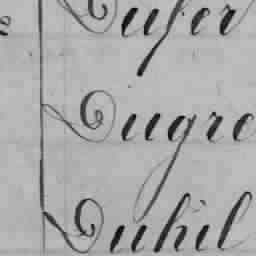 Dufer
Dugre
Duhil